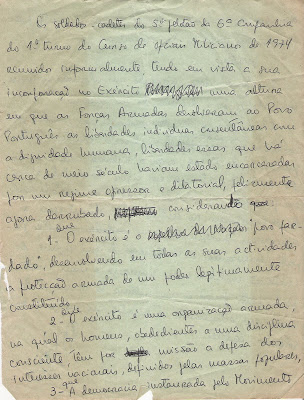 Os soldados-cadetes do 5º pelotão da 6ª Companhia
do 1º turno do Curso de Oficiais Milicianos de 1974
reunidos informalmente tendo em vista a sua
incorporação no Exército numa altura
em que as Forças Armadas devolveram ao Povo
Português as liberdades individuais consentâneas com
a dignidade humana, liberdades essas que há
cerca de meio século haviam estado encarceradas
por um regime opressor e ditatorial, felizmente
agora derrubado, considerando que
1. O exército é o povo far-
dado", desenvolvendo em todas as suas actividades
a protecção armada de um poder legitimamente
constituído
2- que O exército é uma organização armada,
na qual os homens, obedientes a uma disciplina
consciente, têm por missão a defesa dos
interesses nacionais, definidos pelas massas populares,
3- que A democracia instaurada pelo Movimento